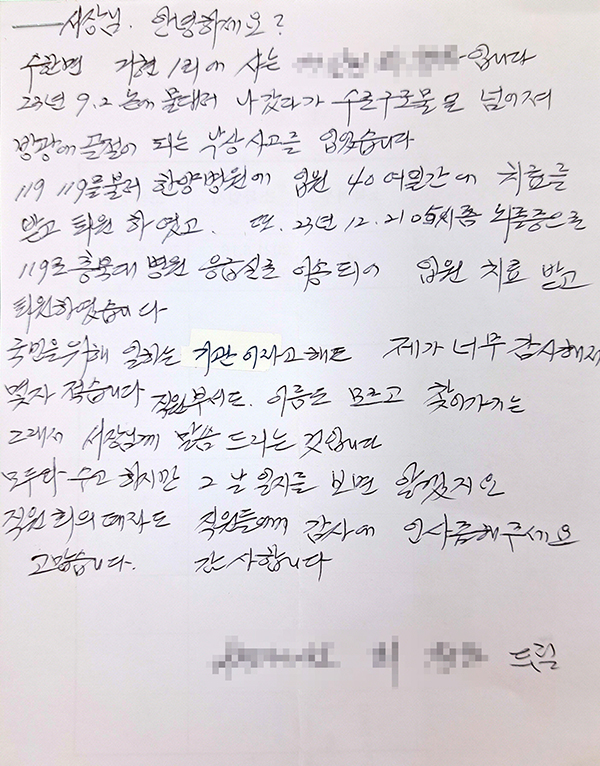 서장님. 안녕하세요?
수한면 거현1리에 사는 입니다
23년 9.2 논에 물대러 나갔다가 수로구조물로 넘어져
방광에 골절이 되는 낙상사고를 입었습니다
119 119를불러 한양병원에 입원 40여일간에 치료를
받고 퇴원 하였고. 또. 23년 12.21 05시쯤 뇌졸증으로
119로 충북대 병원 응급실로 이송되어 입원 치료 받고
퇴원하였습니다
국민을위해 일하는 기관이라고해도 제가 너무 감사해서
몇자 적습니다 직원부서도. 이름도 모르고 찾아가지는
그래서 서장님께 말씀 드리는 것입니다
모두다 수고 하지만 그날 일지를 보면 알겠지요
직원 회의때라도 직원들에게 감사에 인사좀해주세요
고맙습니다. 감사합니다
드림